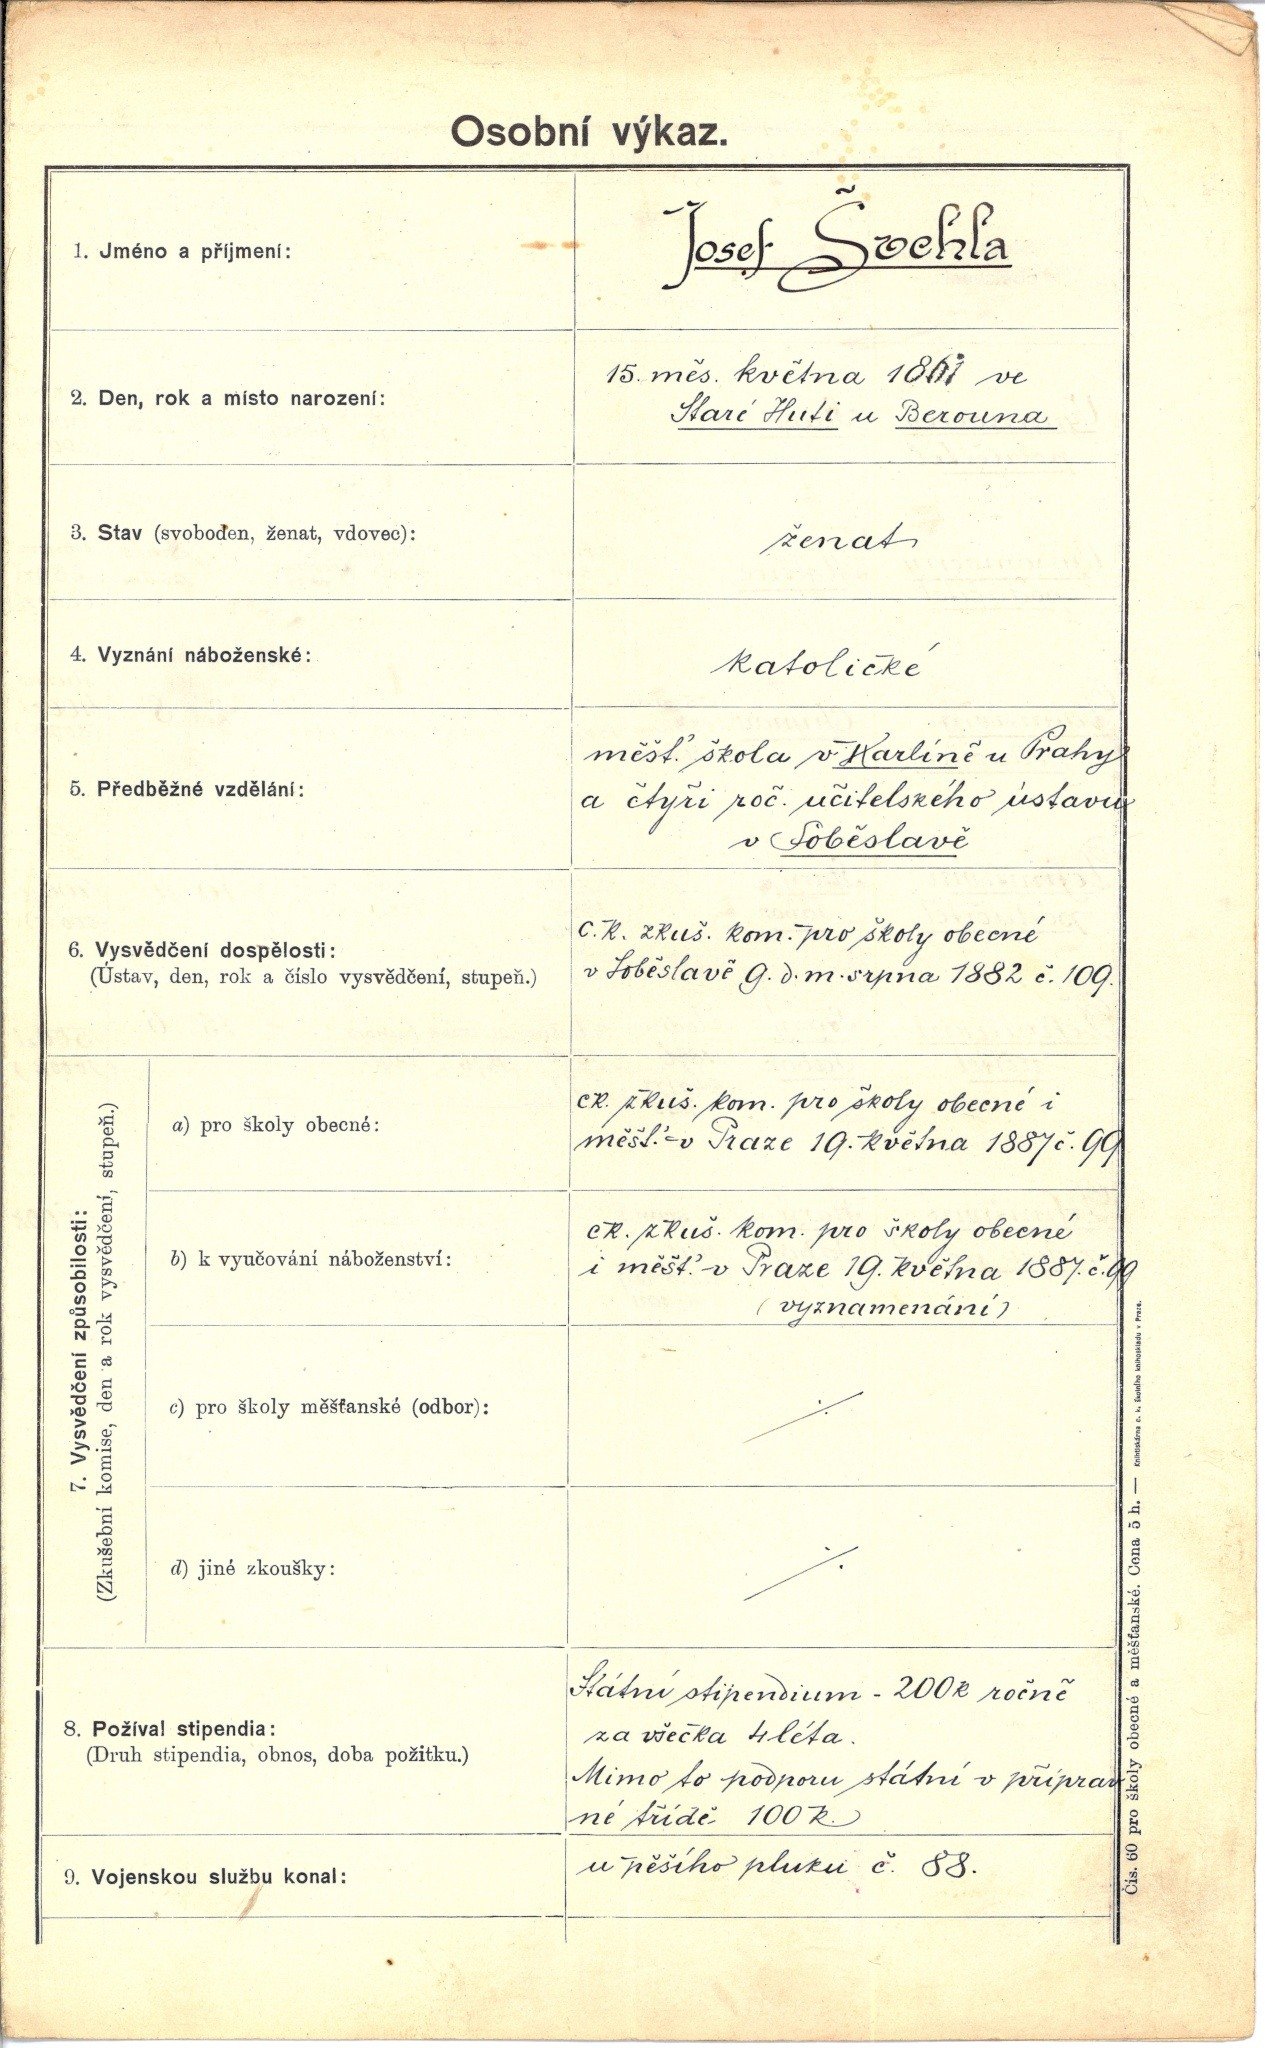 Osobní výkaz.
1. Jméno a příjmení:
Josef Švehla
2. Den, rok a místo narození:
15. měs. května 1861 ve
Staré Huti u Berouna
3. Stav (svoboden, ženat, vdovec):
ženat
4. Vyznání náboženské:
katolické
5. Předběžné vzdělání:
měšť. škola v Karlíně u Prahy
a čtyři roč. učitelského ústavu
v Soběslavě
6. Vysvědčení dospělosti:
(Ústav, den, rok a číslo vysvědčení, stupeň.)
c.k. zkuš. kom. pro školy obecné
v Soběslavě 9. d. m. srpna 1882 č. 109.
7. Vysvědčení způsobilosti:
(Zkušební komise, den a rok vysvědčení, stupeň.)
a) pro školy obecné:
ck. zkuš. kom. pro školy obecné i
měšť. v Praze 19. května 1887 č. 99
b) k vyučování náboženství:
ck. zkuš. kom. pro školy obecné
i měšť. v Praze 19. května 1887. č. 99
(vyznamenání)
c) pro školy měšťanské (odbor):
d) jiné zkoušky:
8. Požíval stipendia:
(Druh stipendia, obnos, doba požitku.)
Státní stipendium - 200 k ročně
za všečka 4 léta.
Mimo to podporu státní v příprav
né třídě 100 k.
9. Vojenskou službu konal:
u pěšího pluku č. 88.
Čís. 60 pro školy obecné a měšťanské. Cena 5 h. — Knihtiskárna c. k. školního knihoskladu v Praze.